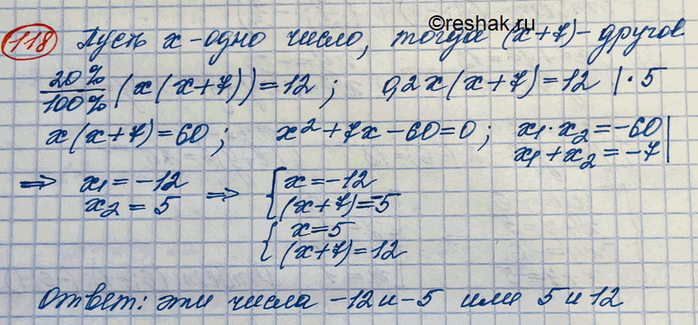 ©reshak.ru
118 Пусть x - одно число, тогда (x+7) - другое
20%/100% (x(x+7))=12; 0,2x(x+7)=12 |·5
x(x+7)=60; x²+7x-60=0; x₁·x₂=-60
x₁+x₂=-7
=> x₁=-12 => { x=-12
x₂=5 (x+7)=-5
{ x=5
(x+7)=12
Ответ: эти числа -12 и -5 или 5 и 12